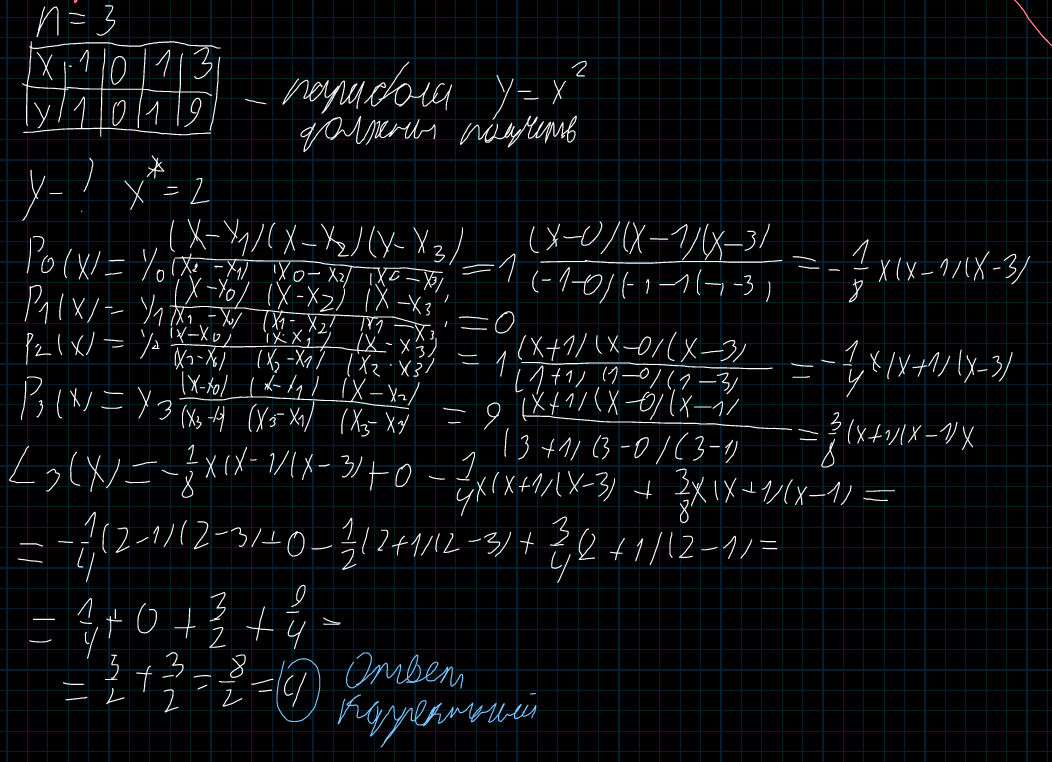 n = 3
x | -1 | 0 | 1 | 3
y | 1 | 0 | 1 | 9
– парабола y = x²
должны получить
y – ? x* = 2
P₀(x) = y₀ (x – x₁)(x – x₂)(x – x₃) / (x₀ – x₁)(x₀ – x₂)(x₀ – x₃) = 1 (x – 0)(x – 1)(x – 3) / (-1 – 0)(-1 – 1)(-1 – 3) = – 1/8 x(x – 1)(x – 3)
P₁(x) = y₁ (x – x₀)(x – x₂)(x – x₃) / (x₁ – x₀)(x₁ – x₂)(x₁ – x₃) = 0
P₂(x) = y₂ (x – x₀)(x – x₁)(x – x₃) / (x₂ – x₀)(x₂ – x₁)(x₂ – x₃) = 1 (x + 1)(x – 0)(x – 3) / (1 + 1)(1 – 0)(1 – 3) = – 1/4 x(x + 1)(x – 3)
P₃(x) = y₃ (x – x₀)(x – x₁)(x – x₂) / (x₃ – x₀)(x₃ – x₁)(x₃ – x₂) = 9 (x + 1)(x – 0)(x – 1) / (3 + 1)(3 – 0)(3 – 1) = 3/8 (x + 1)(x – 1)x
L₃(x) = – 1/8 x(x – 1)(x – 3) + 0 – 1/4 x(x + 1)(x – 3) + 3/8 x(x + 1)(x – 1) =
= – 1/4 (2 – 1)(2 – 3) + 0 – 1/2 (2 + 1)(2 – 3) + 3/4 (2 + 1)(2 – 1) =
= 1/4 + 0 + 3/2 + 9/4 =
= 5/2 + 3/2 = 8/2 = 4 Ответ
корректный